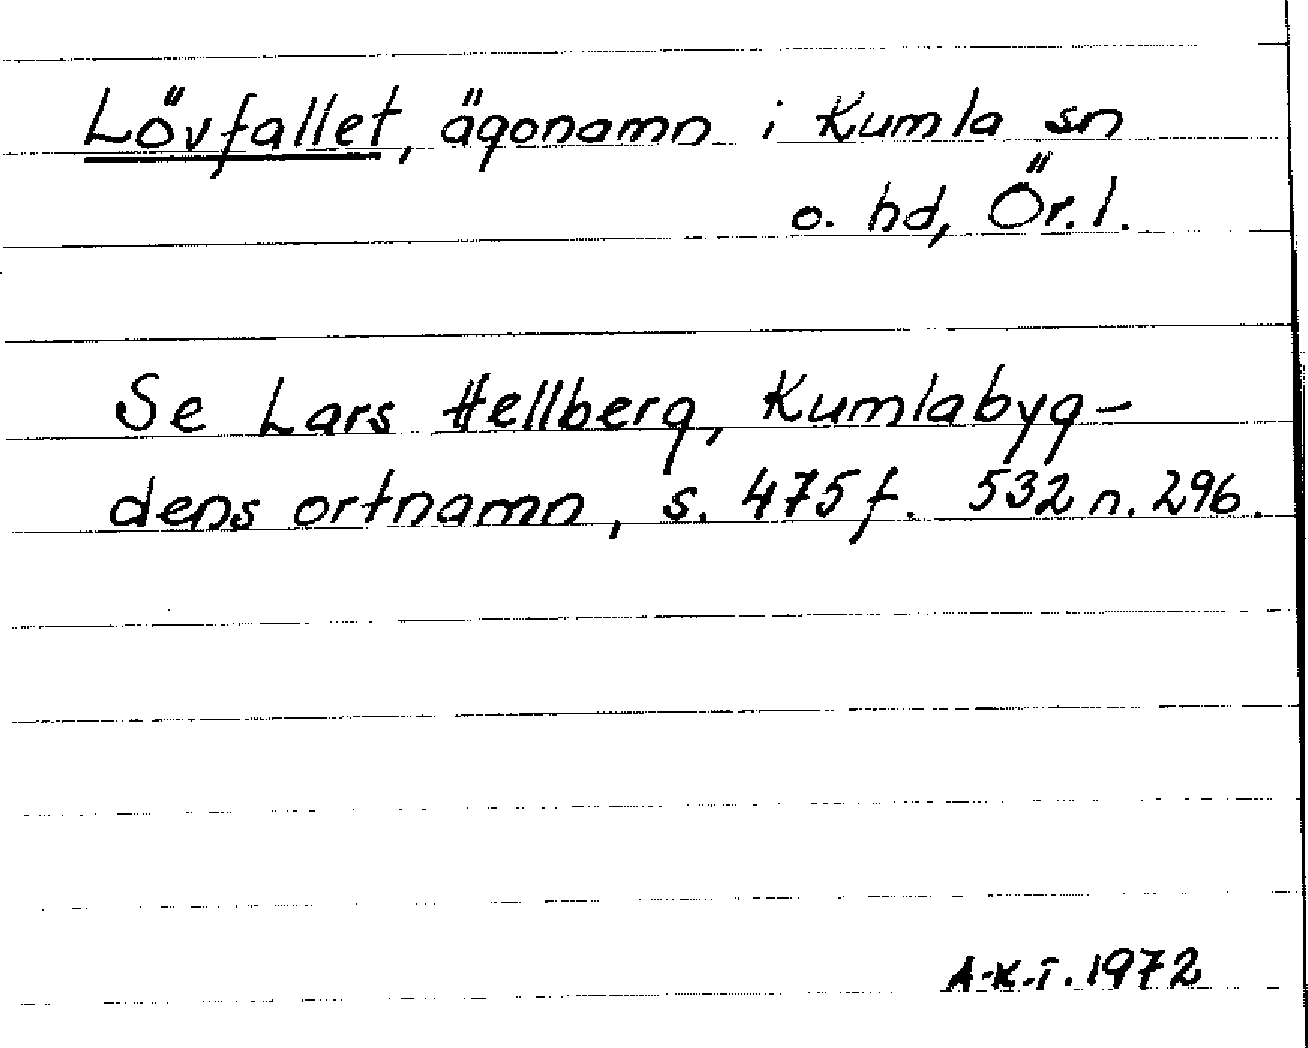 Lövfallet, ägonamn i Kumla sn
o. hd, Ör. l.
Se Lars Hellberg, Kumlabyg-
dens ortnamn, s. 475 f. 532 n. 296.
A-K.T. 1972